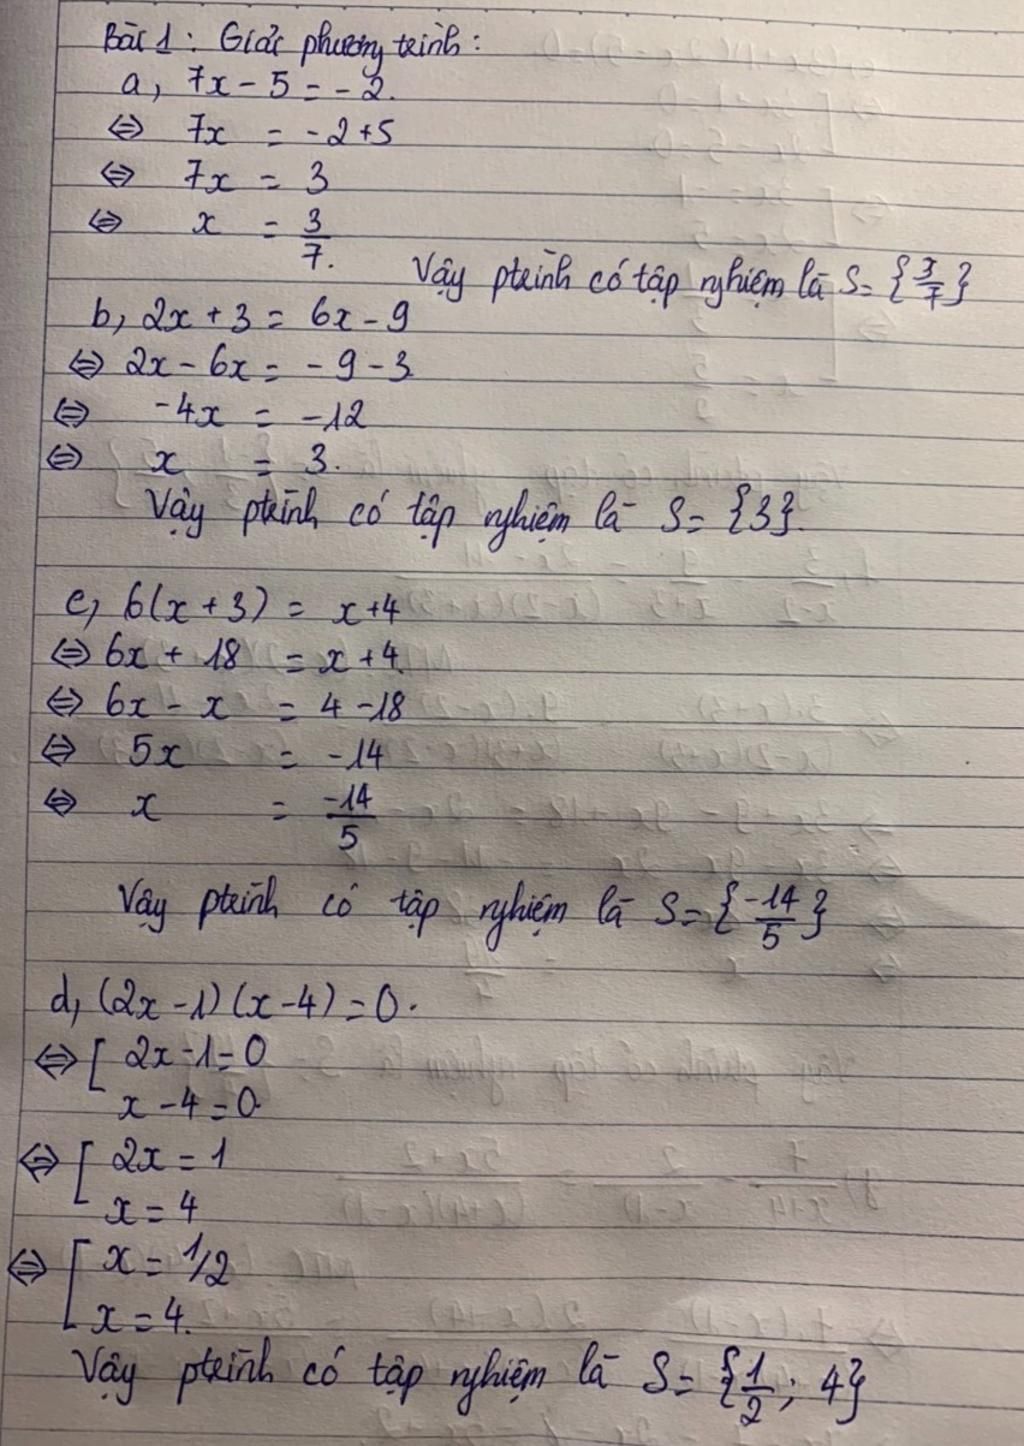 Bài 1: Giải phương trình:
a, 7x - 5 = -2.
⇔ 7x = -2+5
⇔ 7x = 3
⇔ x = 3/7.
Vậy ptrình có tập nghiệm là S= {3/7}
b, 2x + 3 = 6x - 9
⇔ 2x - 6x = -9-3
⇔ -4x = -12
⇔ x = 3.
Vậy ptrình có tập nghiệm là S= {3}.
c, 6(x+3) = x+4
⇔ 6x + 18 = x+4
⇔ 6x - x = 4-18
⇔ 5x = -14
⇔ x = -14/5
Vậy ptrình có tập nghiệm là S= {-14/5}
d, (2x-1)(x-4)=0.
⇔ [ 2x-1=0
x-4=0
⇔ [ 2x=1
x=4
⇔ [ x=1/2
x=4.
Vậy ptrình có tập nghiệm là S= {1/2; 4}